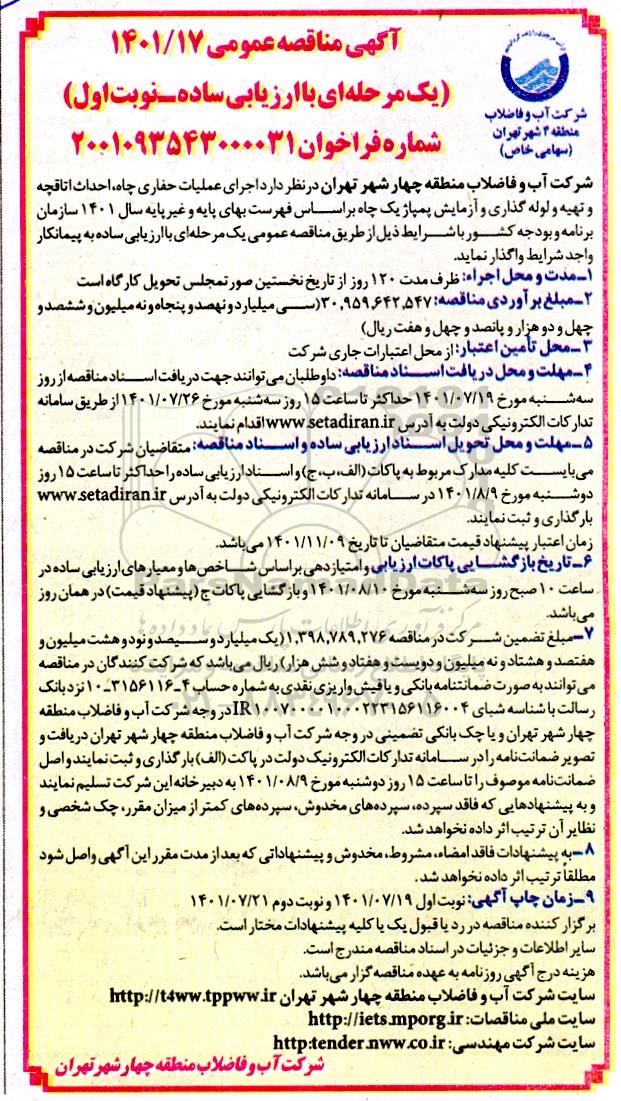 آگهی مناقصه عمومی ۱۴۰۱/۱۷
(یک مرحله‌ای با ارزیابی ساده ـ نوبت اول)
شماره فراخوان ۲۰۰۱۰۹۳۵۴۳۰۰۰۰۳۱
شرکت آب و فاضلاب
منطقه ۴ شهر تهران
(سهامی خاص)
شرکت آب و فاضلاب منطقه چهار شهر تهران در نظر دارد اجرای عملیات حفاری چاه، احداث اتاقچه
و تهیه و لوله گذاری و آزمایش پمپاژ یک چاه براساس فهرست بهای پایه و غیرپایه سال ۱۴۰۱ سازمان
برنامه و بودجه کشور با شرایط ذیل از طریق مناقصه عمومی یک مرحله‌ای با ارزیابی ساده به پیمانکار
واجد شرایط واگذار نماید.
۱ـ مدت و محل اجراء: ظرف مدت ۱۲۰ روز از تاریخ نخستین صورتمجلس تحویل کارگاه است
۲ـ مبلغ برآوردی مناقصه: ۳۰,۹۵۹,۶۴۲,۵۴۷ (سی میلیارد و نهصد و پنجاه و نه میلیون و ششصد و
چهل و دو هزار و پانصد و چهل و هفت ریال)
۳ـ محل تأمین اعتبار: از محل اعتبارات جاری شرکت
۴ـ مهلت و محل دریافت اسناد مناقصه: داوطلبان می‌توانند جهت دریافت اسناد مناقصه از روز
سه‌شنبه مورخ ۱۴۰۱/۰۷/۱۹ حداکثر تا ساعت ۱۵ روز سه‌شنبه مورخ ۱۴۰۱/۰۷/۲۶ از طریق سامانه
تدارکات الکترونیکی دولت به آدرس www.setadiran.ir اقدام نمایند.
۵ـ مهلت و محل تحویل اسناد ارزیابی ساده و اسناد مناقصه: متقاضیان شرکت در مناقصه
می‌بایست کلیه مدارک مربوط به پاکات (الف، ب، ج) و اسناد ارزیابی ساده را حداکثر تا ساعت ۱۵ روز
دوشنبه مورخ ۱۴۰۱/۸/۹ در سامانه تدارکات الکترونیکی دولت به آدرس www.setadiran.ir
بارگذاری و ثبت نمایند.
زمان اعتبار پیشنهاد قیمت متقاضیان تا تاریخ ۱۴۰۱/۱۱/۰۹ می‌باشد.
۶ـ تاریخ بازگشایی پاکات ارزیابی و امتیازدهی براساس شاخص‌ها و معیارهای ارزیابی ساده در
ساعت ۱۰ صبح روز سه‌شنبه مورخ ۱۴۰۱/۰۸/۱۰ و بازگشایی پاکات ج (پیشنهاد قیمت) در همان روز
می‌باشد.
۷ـ مبلغ تضمین شرکت در مناقصه ۱,۳۹۸,۷۸۹,۲۷۶ (یک میلیارد و سیصد و نود و هشت میلیون و
هفتصد و هشتاد و نه میلیون و دویست و هفتاد و شش هزار) ریال می‌باشد که شرکت کنندگان در مناقصه
می‌توانند به صورت ضمانتنامه بانکی و یا فیش واریزی نقدی به شماره حساب ۴ـ۳۱۵۶۱۱۶ـ۱۰ نزد بانک
رسالت با شناسه شبای در وجه شرکت آب و فاضلاب منطقه
چهار شهر تهران و یا چک بانکی تضمینی در وجه شرکت آب و فاضلاب منطقه چهار شهر تهران دریافت و
تصویر ضمانت‌نامه را در سامانه تدارکات الکترونیک دولت در پاکت (الف) بارگذاری و ثبت نمایند و اصل
ضمانت‌نامه موصوف را تا ساعت ۱۵ روز دوشنبه مورخ ۱۴۰۱/۰۸/۹ به دبیرخانه این شرکت تسلیم نمایند
و به پیشنهادهایی که فاقد سپرده، سپرده‌های مخدوش، سپرده‌های کمتر از میزان مقرر، چک شخصی و
نظایر آن ترتیب اثر داده نخواهد شد.
۸ـ به پیشنهادات فاقد امضاء، مشروط، مخدوش و پیشنهاداتی که بعد از مدت مقرر این آگهی واصل شود
مطلقاً ترتیب اثر داده نخواهد شد.
۹ـ زمان چاپ آگهی: نوبت اول ۱۴۰۱/۰۷/۱۹ و نوبت دوم ۱۴۰۱/۰۷/۲۱
برگزار کننده مناقصه در رد یا قبول یک یا کلیه پیشنهادات مختار است.
سایر اطلاعات و جزئیات در اسناد مناقصه مندرج است.
هزینه درج آگهی روزنامه به عهده مناقصه‌گزار می‌باشد.
سایت شرکت آب و فاضلاب منطقه چهار شهر تهران http://t4ww.tppww.ir
سایت ملی مناقصات: http://iets.mporg.ir
سایت شرکت مهندسی: http:tender.nww.co.ir
شرکت آب و فاضلاب منطقه چهار شهر تهران